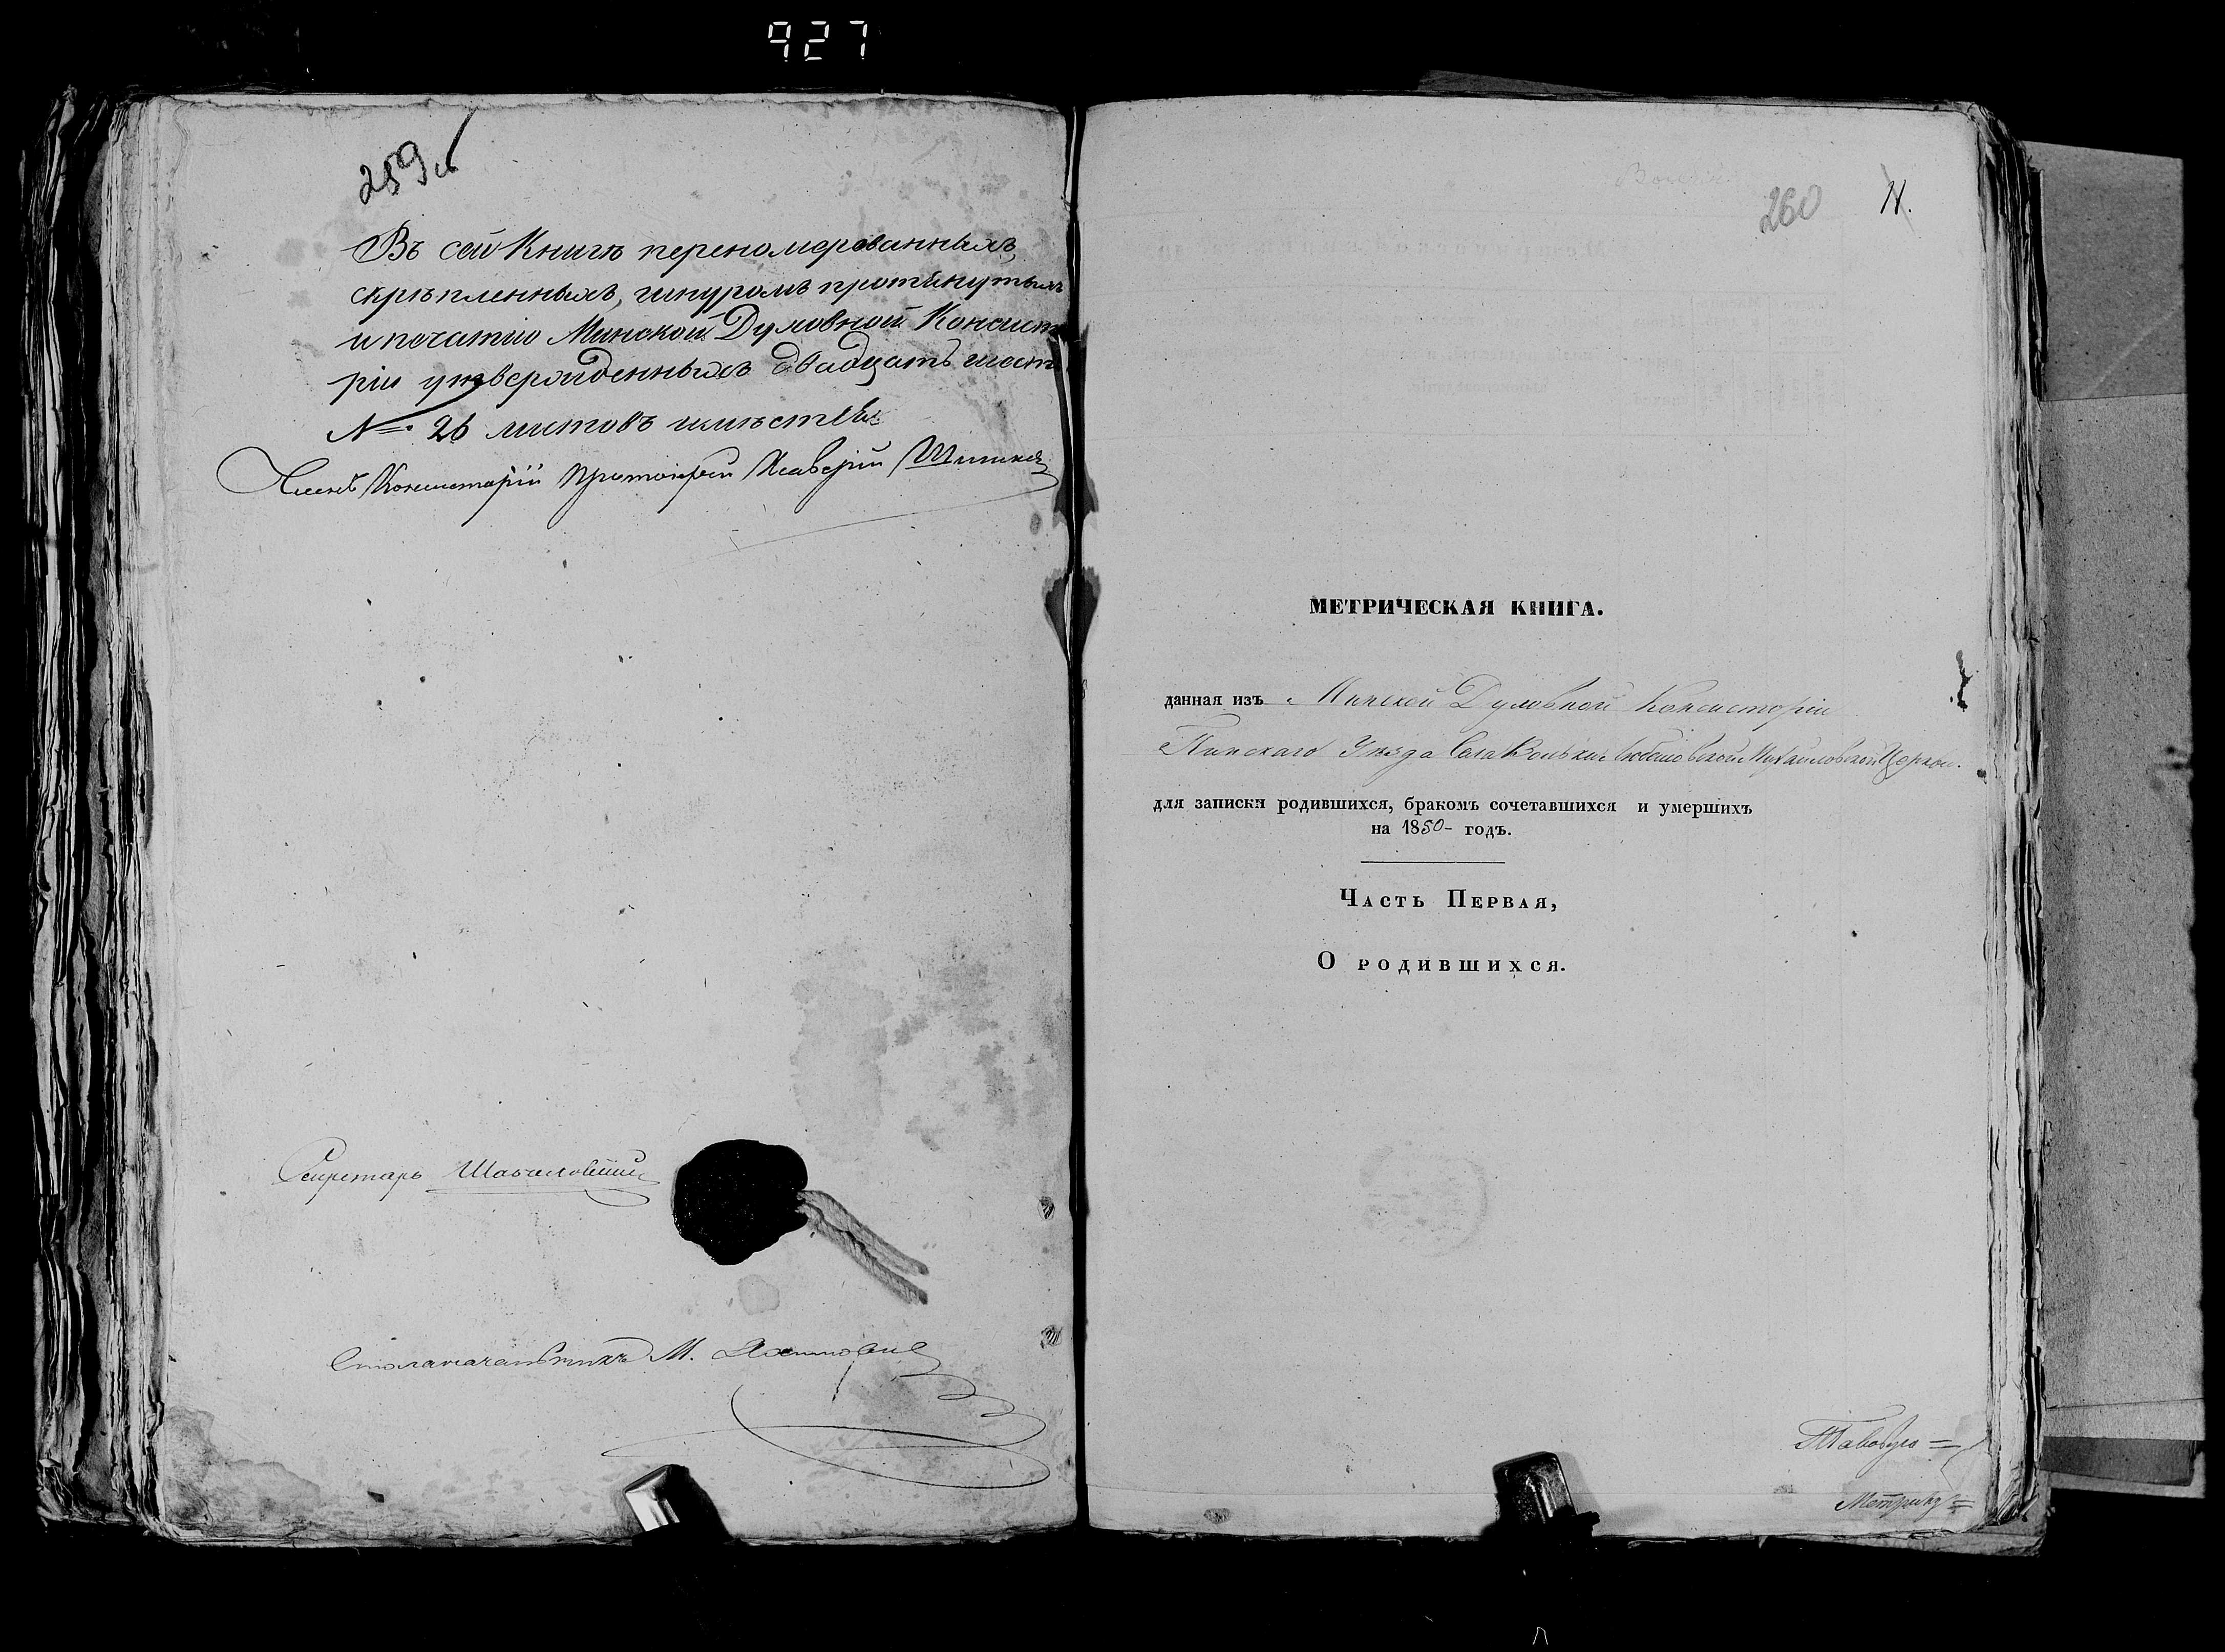 927
259 и
Въ сей Книгѣ перенумерованныхъ,
скрѣпленныхъ, шнуромъ протянутыхъ
и печатію Минской Духовной Консисто
ріи утвержденныхъ двадцать шесть
№ 26 листовъ имѣется
Членъ Консисторіи Протоіерей
Секретарь
Столоначальникъ М.
260
11.
МЕТРИЧЕСКАЯ КНИГА.
данная изъ Минской Духовной Консисторіи
Пинскаго Уѣзда Села Вольки Любешовской Михайловской Церкви.
для записки родившихся, бракомъ сочетавшихся и умершихъ
на 1850- годъ.
Часть Первая,
О родившихся.